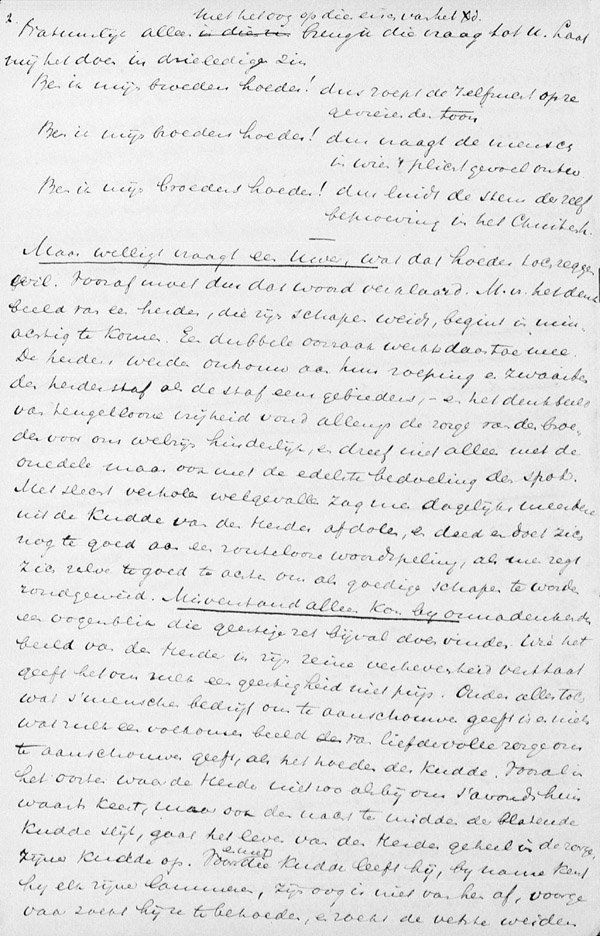 2. Met het oog op die eisch van het Xd.
Natuurlijk alleen in die zin breng ik die vraag tot U. Laat
mij het doen in drieledige zin
Ben ik mijns broeders hoeder! dus roept de zelfzucht op
toon
Ben ik mijns broeders hoeder! dus vraagt de mensch
in wien 't plichtgevoel
Ben ik mijns broeders hoeder! dus luidt de stem der zelf
beproeving in het
Maar welligt vraagt een Uwer, wat dat hoeden toch zeggen
wil. Vooraf moet dus dat woord verklaard. M. v. het denk
beeld van een herder, die zijn schapen weidt, begint in min
achting te komen. Een dubbele oorzaak werkt daartoe mee.
De herders werden ontrouw aan hun roeping en zwaaiden
den herdersstaf als de staf eens gebieders, – en het denkbeeld
van teugellooze vrijheid vond allengs de zorge van den hoe
der voor ons welzijn hinderlijk, en dreef niet alleen met de
onedele maar ook met de edelste bedoeling den spot.
Met slecht verholen welgevallen zag men dagelijks meerderen
uit de kudde van den Herder afdolen, en deed en doet zich
nog te goed aan een zouteloze woordspeling, als men zegt
zich zelve te goed te achten om als goedige schapen te worden
rondgeweid. Misverstand alleen kon bij onnadenkenden
een oogenblik die geestige zet bijval doen vinden. Wie het
beeld van den Herder in zijn reine verhevenheid verstaat
geeft het om zulk een geestigheid niet prijs. Onder alles toch
wat s'menschen bedrijf ons te aanschouwen geeft is er niets
wat zulk een volkomen beeld der van liefdevolle zorge ons
te aanschouwen geeft, als het hoeden der kudde. Vooral in
het oosten waar de Herder niet zoo als bij ons s'avonds huis
waarts keert, maar ook den nacht te midden der blatende
kudde slijt, gaat het leven van den Herder geheel in de zorge
zijner kudde op. Voor en met die kudde leeft hij, bij name kent
hij elk zijner lammeren, zijn oog is niet van hen af, voor ge
vaar zoekt hij ze te behoeden, en zoekt de vetste weiden